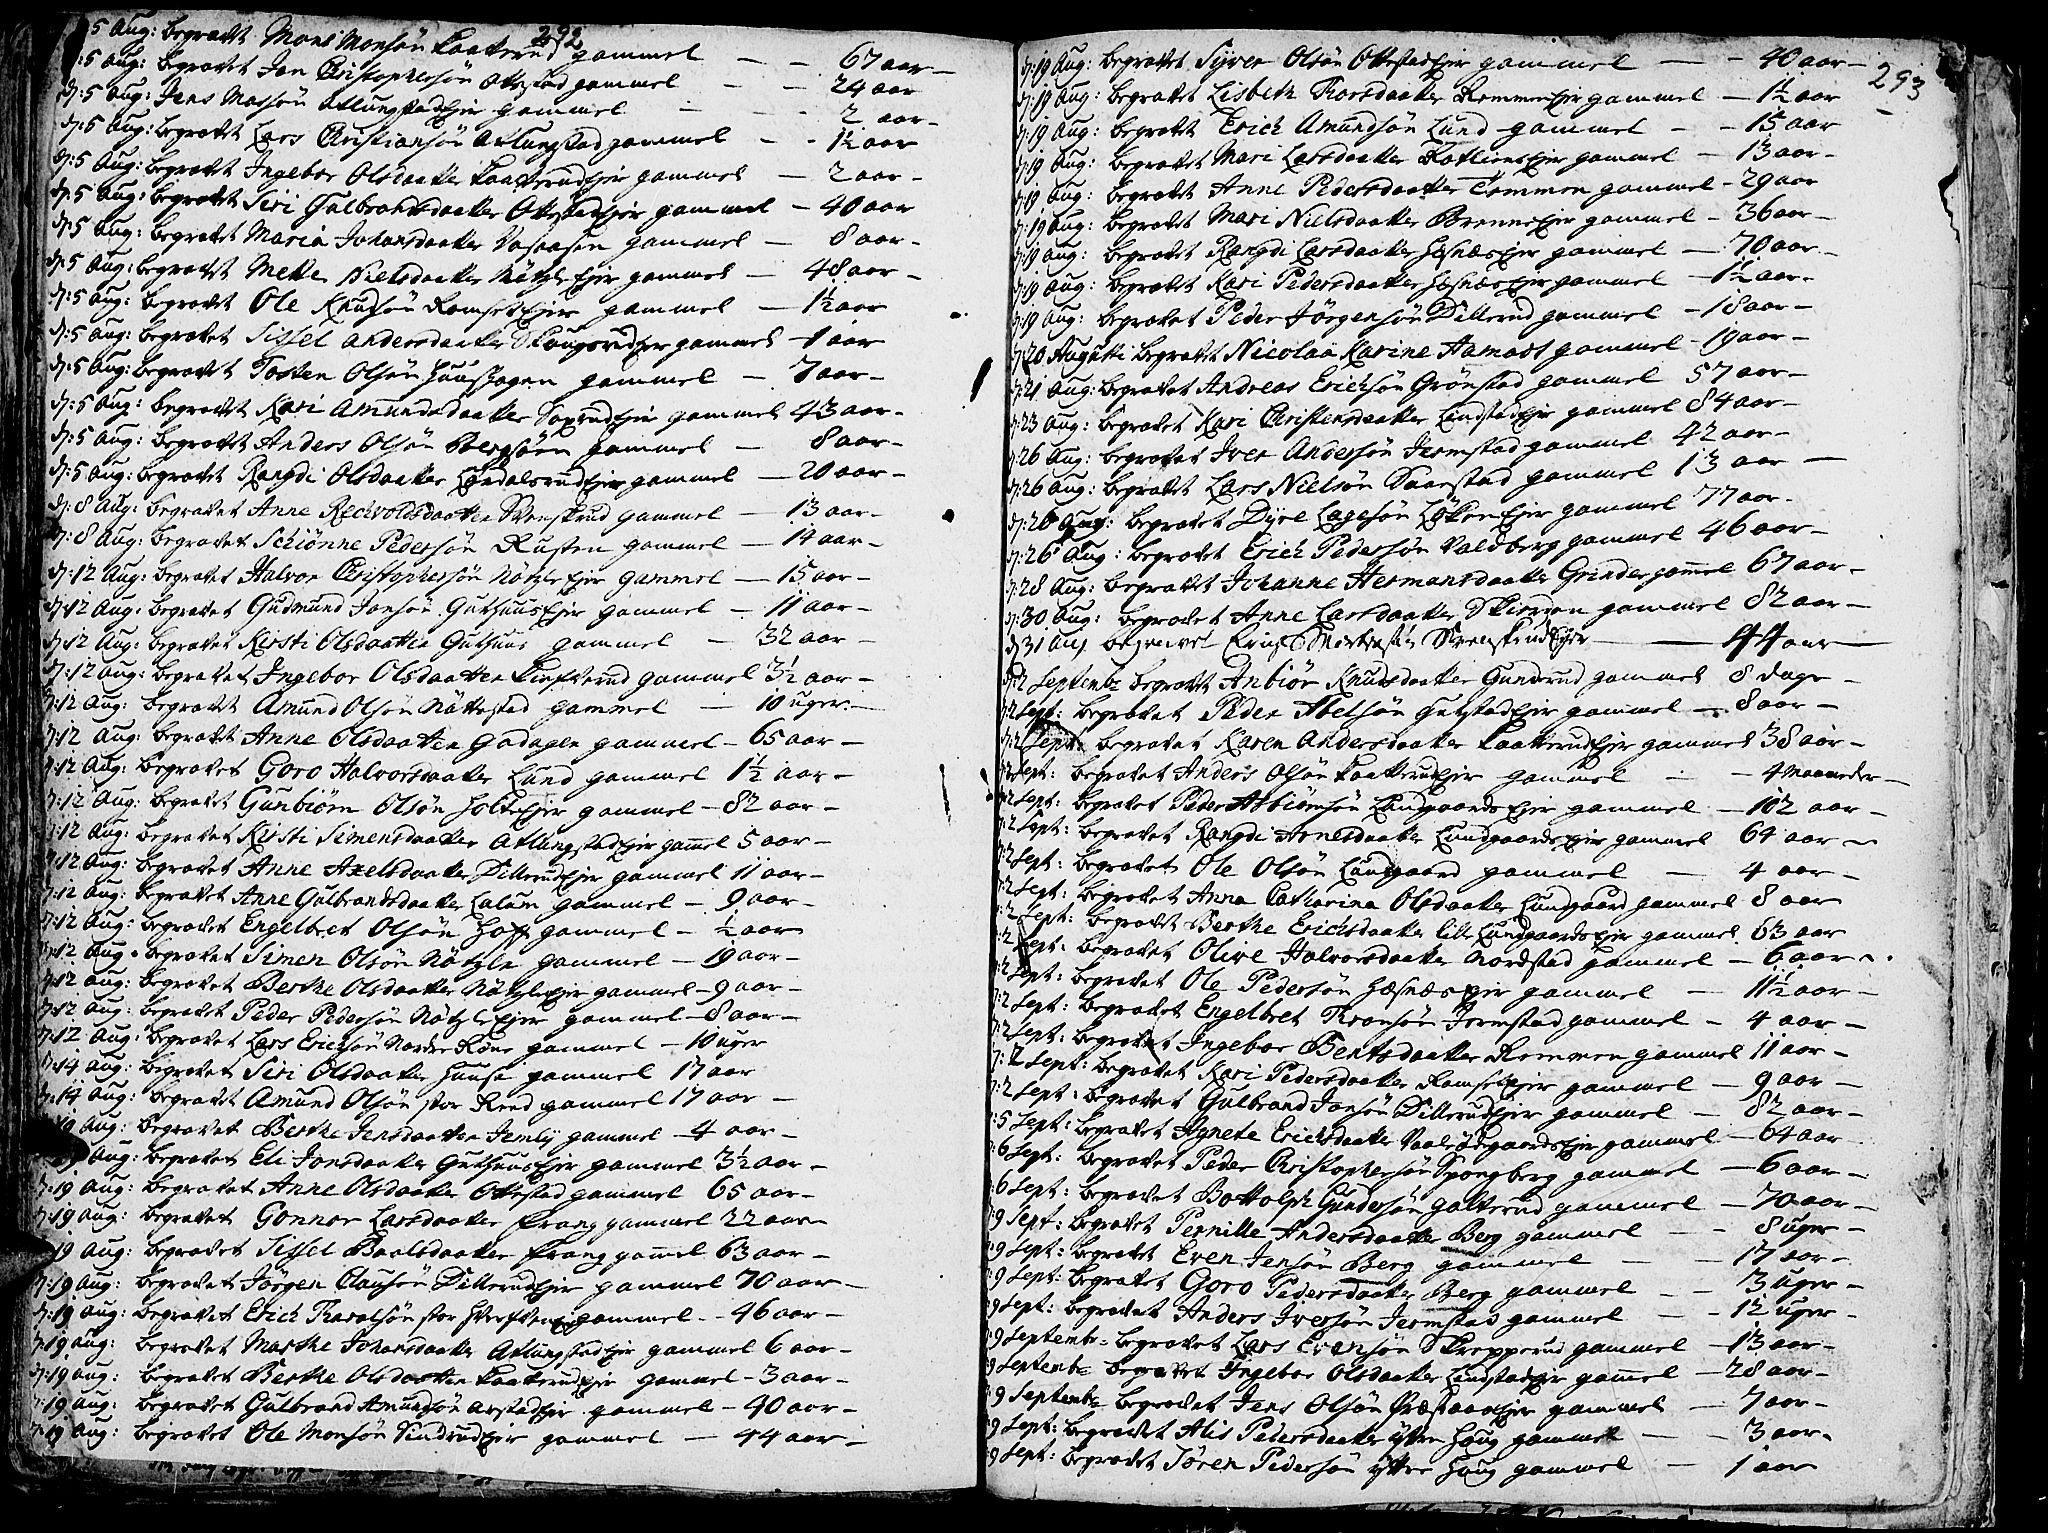 292
5 Aug: begravet Mons Monsön Kaatterud gammel — — 67 aar —
d:5 Aug: begravet Jon Christophersön Ottestad gammel — — 24 aar
d:5 Aug: Jens Massön Atlungstadeje gammel — — 2 aar —
d:5 Aug: begravet Lars Christiansön Atlungstad gammel — - 1½ aar
d:5 Aug: begravet Ingebor Olsdaatter Kaatterudejer gammel — 2 aar —
d:5 Aug: begravet Siri Gulbrandsdaatter Ottestadejer gammel — 40 aar
d:5 Aug: begravet Maria Johansdaatter Vasaasen gammel — 8 aar —
d:5 Aug: begravet Mette Nielsdaatter Nötzleejer gammel — 48 aar —
d:5 Aug: begravet Ole Knudsön Ramsetejer gammel — 1½ aar
d:5 Aug: begravet Sissel Andersdaatter Skougsrudejer gammel — 1 aar
d:5 Aug: begravet Tosten Olsön Huusskagen gammel — 7 aar —
d:5 Aug: begravet Kari Amundsdaatter Soprudejer gammel 43 aar —
d:5 Aug: begravet Anders Olsön Bergsören gammel — 8 aar —
d:5 Aug: begravet Rangdi Olsdaatter Lardalsrudejer gammel — 20 aar —
d:8 Aug: begravet Anne Redvoldsdaatter Svenskrud gammel — 13 aar —
d:8 Aug: begravet Schiönne Pedersön Rusten gammel — 14 aar —
d:12 Aug: begravet Halvor Christophersön Nötzleejer gammel — 15 aar —
d:12 Aug: begravet Gudmund Jonsön Guthuusejer gammel — 11 aar —
d:12 Aug: begravet Kersti Olsdaatter Guthuus gammel — 32 aar —
d:12 Aug: begravet Ingebor Olsdaatter Finsterud gammel 3½ aar —
d:12 Aug: begravet Amund Olsön Nöttestad gammel — 10 uger —
d:12 Aug: begravet Anne Olsdaatter Gadagen gammel — 65 aar —
d:12 Aug: begravet Goro Halvorsdaatter Lund gammel 1½ aar —
d:12 Aug: begravet Gunbiörn Olsön Holteejer gammel — 82 aar —
d:12 Aug: begravet Kersti Simensdaatter Atlungstadejer gammel 5 aar —
d:12 Aug: begravet Anne Axelsdaatter Dillerudejer gammel 11 aar —
d:12 Aug: begravet Anne Gulbrandsdaatter Lalum gammel — 9 aar —
d:12 Aug: begravet Engelbret Olsön Hoff gammel — ½ aar
d:12 Aug: begravet Simen Olsön Nötzle gammel — 19 aar —
d:12 Aug: begravet Berthe Olsdaatter Nötzleejer gammel — 9 aar —
d:12 Aug: begravet Peder Pedersön Nötzleejer gammel — 8 aar —
d:12 Aug: begravet Lars Ericksön Nordre Röne gammel — 10 uger
d:14 Aug: begravet Siri Olsdaatter Huuse gammel 17 aar
d:14 Aug: begravet Amund Olsön stor Reed gammel 17 aar —
19 Aug: begravet Berthe Jensdaatter Jemly gammel — 4 aar —
19 Aug: begravet Eli Jonsdaatter Guthuusejer gammel 3½ aar —
d:19 Aug: begravet Anne Olsdaatter Ottestad gammel 65 aar —
d:19 Aug: begravet Gonnor Larsdaatter Frang gammel 22 aar —
19 Aug: begravet Sissel Baalsdaatter Frang gammel 63 aar —
d:19 Aug: begravet Jörgen Clausön Dillerudejer gammel 70 aar —
d:19 Aug: begravet Erich Tharalsön stor gammel — 46 aar —
d:19 Aug: begravet Marthe Johansdaatter Atlungstadejer gammel 6 aar —
d:19 Aug: begravet Berthe Olsdaatter Kaatterudejer gammel — 3 aar —
d:19 Aug: begravet Gulbrand Amundsön Arstadejer gammel — 40 aar —
d:19 Aug: begravet Ole Monsön Sindrudejer gammel — 44 aar —
293
d:19 Aug: begravet Syver Olsön Ottestadejer gammel — — 40 aar —
d:19 Aug: begravet Lisbeth Thorsdaatter Rommenejer gammel — 1½ aar
d:19 Aug: begravet Erich Amundsön Lund gammel — — 15 aar
d:19 Aug: begravet Mari Larsdaatter Kattiensejer gammel — 13 aar —
d:19 Aug: begravet Anne Pedersdaatter Tommen gammel — 29 aar
d:19 Aug: begravet Mari Nielsdaatter Brenneejer gammel — 36 aar —
d:19 Aug: begravet Rangdi Larsdaatter Hesnæsejer gammel — 70 aar —
d:19 Aug: begravet Kari Pedersdaatter Hesnæsejer gammel — 1½ aar —
d:19 Aug: begravet Peder Jörgensön Dillerud gammel — 18 aar —
d:20 Augusti begravet Nicolaa Karine Aamodt gammel — 19 aar —
d:21 Aug: begravet Andreas Erichsön Grönstad gammel 57 aar —
d:23 Aug: begravet Kari Christensdaatter Lindstadejer gammel 84 aar —
d:26 Aug: begravet Iver Andersön Jermstad gammel 42 aar —
d:26 Aug: begravet Lars Nielsön Saarstad gammel 13 aar —
d:26 Aug: begravet Dyre Lagesön Lökenejer gammel 77 aar —
d:26 Aug: begravet Erich Pedersön Valdberg gammel 46 aar —
d:28 Aug: begravet Johanne Hermansdaatter Grinder gammel 67 aar —
d:30 Aug: begravet Anne Larsdaatter Skierden gammel 82 aar —
d 31 Aug begravet Erich Mortensön Svenskerudejer — 44 aar —
d:2 Septembr begravet Anbiör Knudsdaatter Gunderud gammel 8 dage —
d:2 Sept: begravet Peder Abelsön Gulstadejer gammel — 8 aar —
d:2 Sept: begravet Karen Andersdaatter Kaatterudejer gammel 38 aar —
d:2 Sept: begravet Anders Olsön Kaatterudejer gammel — — 4 maaneder —
d:2 Sept: begravet Peder Asbiörnsön Lundgaardsejer gammel — 102 aar —
d:2 Sept: begravet Rangdi Arnesdaatter Lundgaardsejer gammel 64 aar —
d:2 Sept: begravet Ole Olsön Lundgaard gammel — 4 aar —
d:2 Sept: begravet Anna Catharina Olsdaatter Lundgaard gammel 8 aar
d:2 Sept: begravet Berthe Erichsdaatter lille Lundgaardsejer gammel 63 aar
d:2 Sept: begravet Olive Halvorsdaatter Nordstad gammel — 6 aar —
d:2 Sept: begravet Ole Pedersön Hesnæsejer gammel — 11½ aar —
d:2 Sept: begravet Engelbret Thronsön Jermstad gammel — 4 aar —
d:2 Sept: begravet Ingebor Bentsdaatter Rommen gammel 11 aar —
d:2 Sept: begravet Kari Pedersdaatter Ramsetejer gammel — 9 aar —
d:2 Sept: begravet Gulbrand Jonsön Dillerudejer gammel — 82 aar —
5 Sept: begravet Agnete Erichsdaatter Vaalsödegaardsejer gammel — 64 aar —
6 Sept: begravet Peder Christophersön Spongberg gammel — 6 aar —
6 Sept: begravet Bottolph Gundersön Galterud gammel — 70 aar —
9 Sept: begravet Pernille Andersdaatter Berg gammel — 8 uger —
9 Sept: begravet Even Jensön Berg gammel — — 17 aar —
9 Sept: begravet Goro Pedersdaatter Berg gammel — — 3 uger —
9 Sept: begravet Anders Iversön Jermstad gammel — 12 uger —
9 Septembr: begravet Lars Evensön Skrepperud gammel — 13 aar —
9 Septembr begravet Ingebor Olsdaatter Lindstadejer gammel — 28 aar —
9 Septembr begravet Jens Olsön Præstaardejer gammel — 7 aar —
9 Sept: begravet Alis Pedersdaatter ytre Houg gammel — — 3 aar —
9 Sept: begravet Sören Pedersön ytre Houg gammel — 1 aar